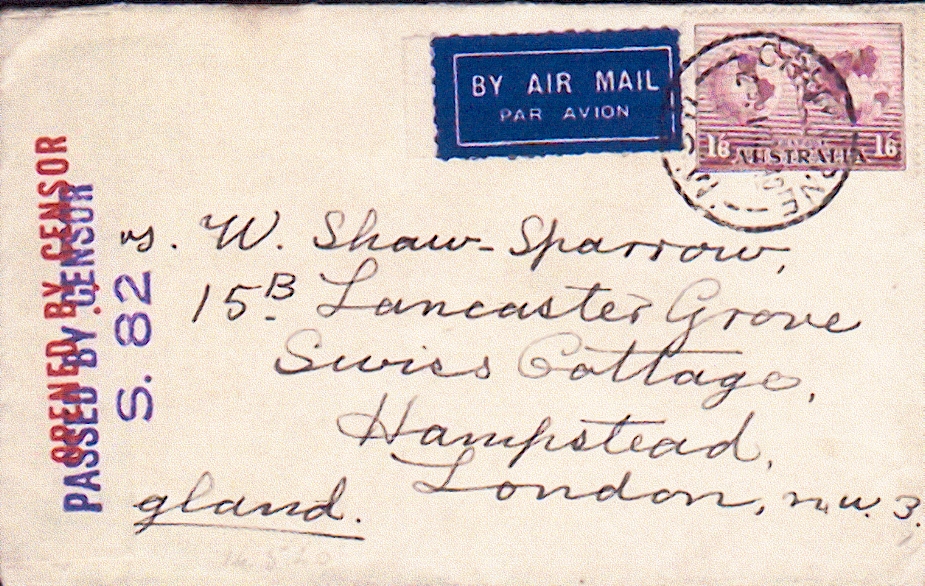 BY AIR MAIL
PAR AVION
1/6 AUSTRALIA 1/6
OPENED BY CENSOR
PASSED BY CENSOR
S. 82
rs. W. Shaw-Sparrow,
15B Lancaster Grove
Swiss Cottage,
Hampstead,
London, n.w. 3.
gland.